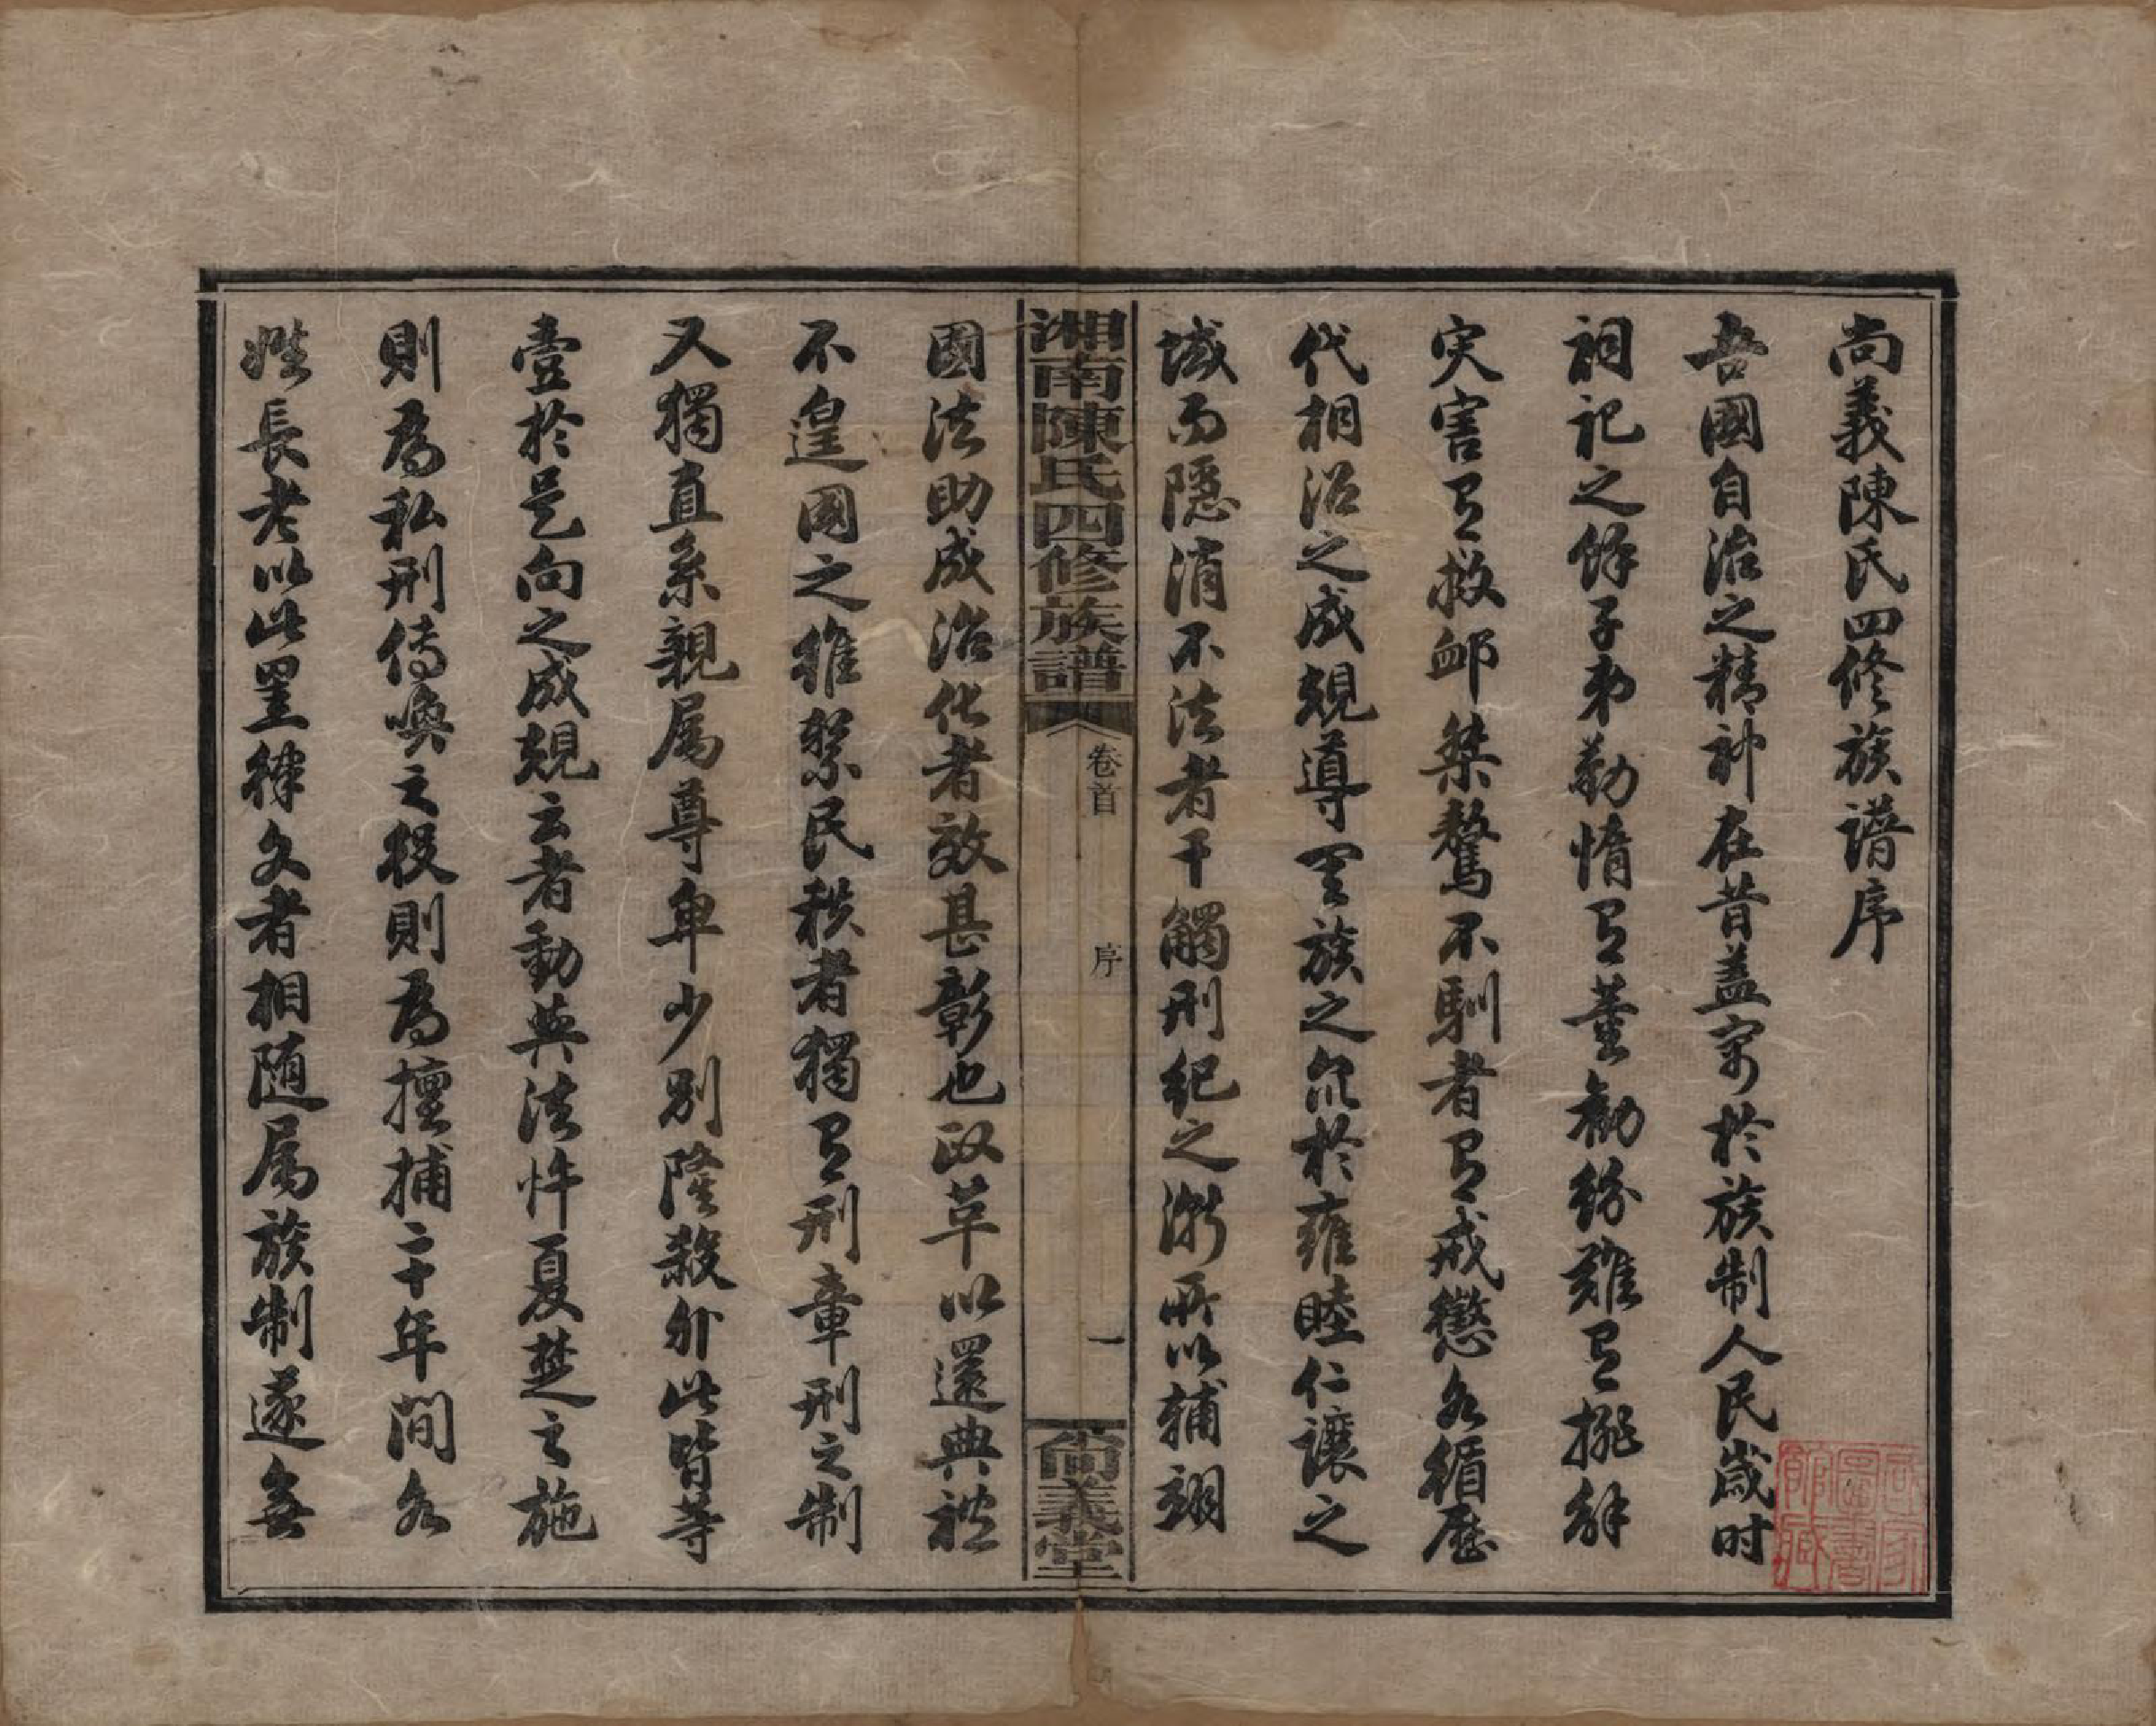 尚義陳氏四修族譜序
吾國自治之精神在昔蓋寓於族制人民歲时
祠祀之餘子弟勤惰有董勸紛難有排解
灾害有救卹桀驁不馴者有戒懲各循歷
代相沿之成規導閤族之衆於雍睦仁讓之
域而隱消不法者干觸刑紀之漸所以輔翊
湘南陳氏四修族譜
卷首
序
一
尚義堂
國法助成治化者效甚彰也改革以還典禮
不遑國之維繫民秩者獨有刑章刑之制
又獨直系親属尊卑少別隆殺外此皆等
壹於是向之成規云者動與法忤夏楚之施
則為私刑傳喚之役則為擅捕二十年間各
姓長老以此罣律文者相随属族制遂無
國家圖書館藏